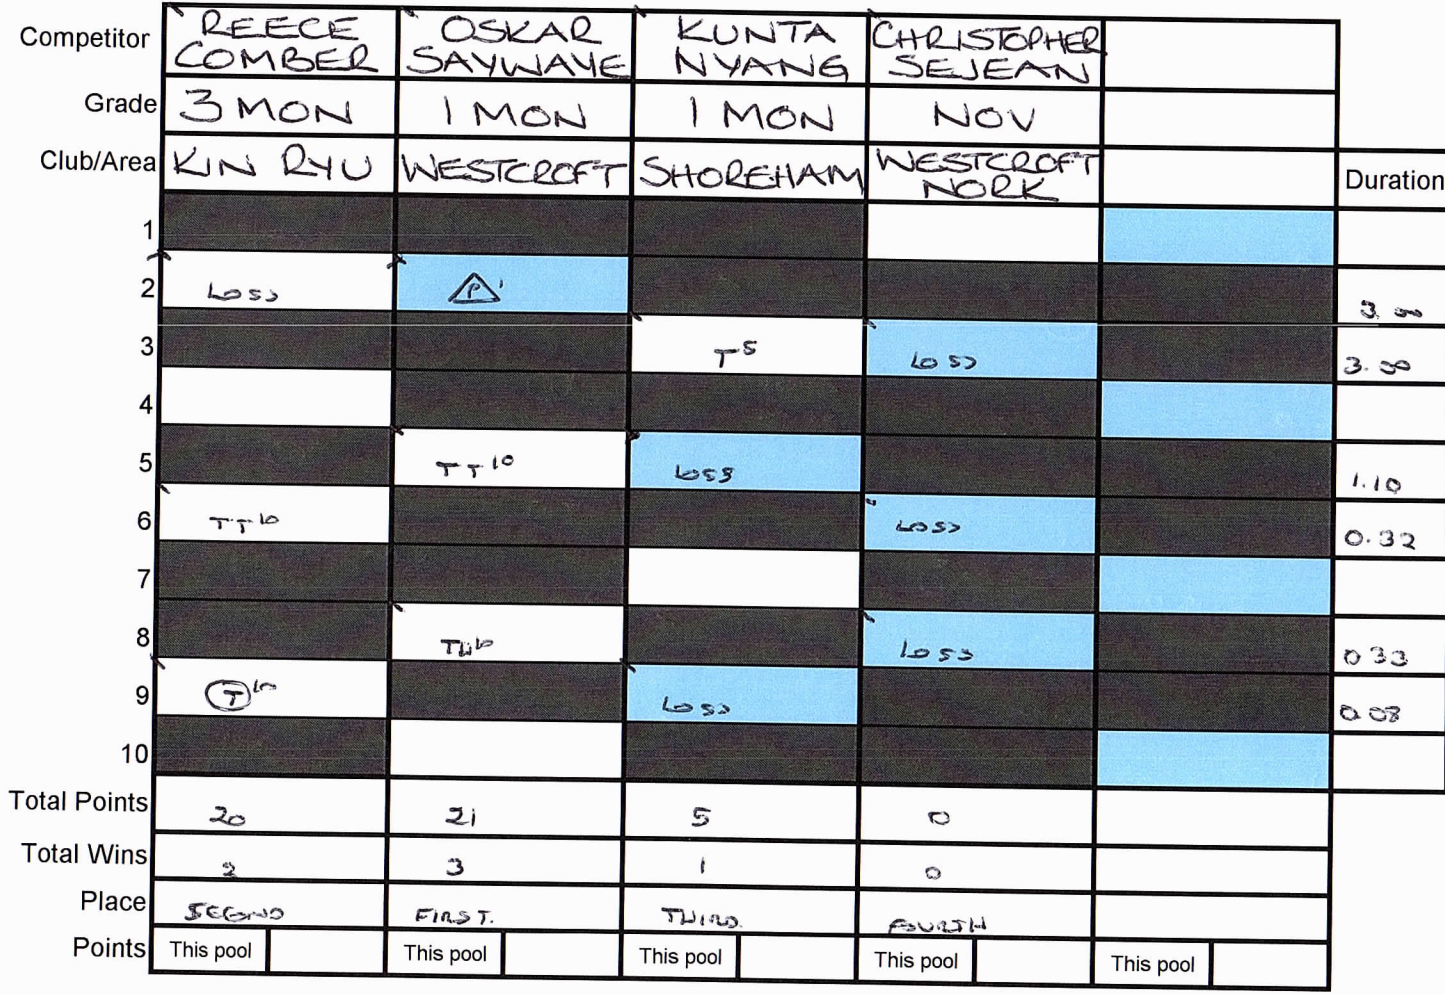 Competitor REECE COMBER OSKAR SAYWAYE KUNTA NYANG CHRISTOPHER SEJEAN
Grade 3 MON 1 MON 1 MON NOV
Club/Area KIN RYU WESTCROFT SHOREHAM WESTCROFT NORK Duration
1
2 LOSS P 1 3.00
3 T 5 LOSS 3.00
4
5 TT 10 LOSS 1.10
6 TT 10 LOSS 0.32
7
8 LOSS 0 33
9 T 10 LOSS 0.08
10
Total Points 20 21 5 0
Total Wins 2 3 1 0
Place SECOND FIRST. THIRD. FOURTH
Points This pool This pool This pool This pool This pool